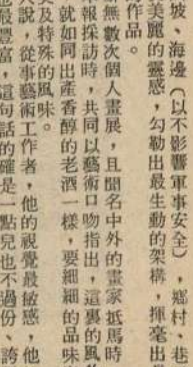 坡、海邊（以不影響軍事安全），鄉村、巷
美麗的靈感，勾勒出最生動的架構，揮毫出
作品。
無數次個人畫展，且聞名中外的畫家抵馬時
報採訪時，共同以藝術口吻指出，這裏的風
就如同出產香醇的老酒一樣，要細細的品味
及特殊的風味。
人說，從事藝術工作者，他的視覺最敏感，他
最豐富，這句話的確是一點兒也不過份、誇